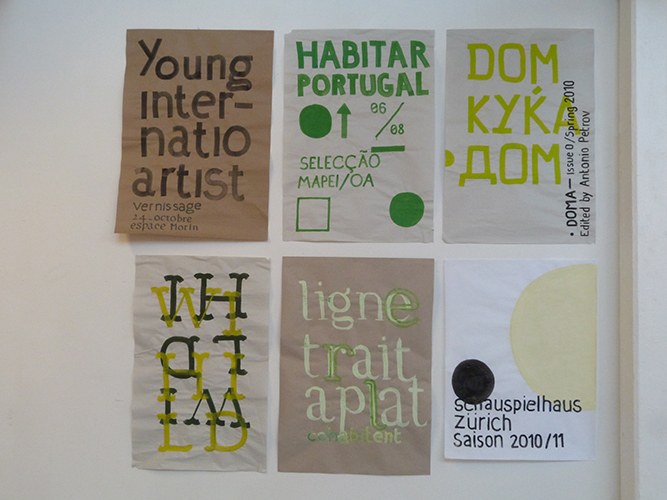 Young
inter-
natio
artist
Vernissage
24-octobre
espace Morin
HABITAR
PORTUGAL
06
/
08
SELECÇÃO
MAPEI/OA
DOM
KYЌA
ДOM
• DOMA — Issue 0/Spring 2010
Edited by Antonio Petrov
WILD
ligne
trait
aplat
cohabitent
Schauspielhaus
Zürich
Saison 2010/11